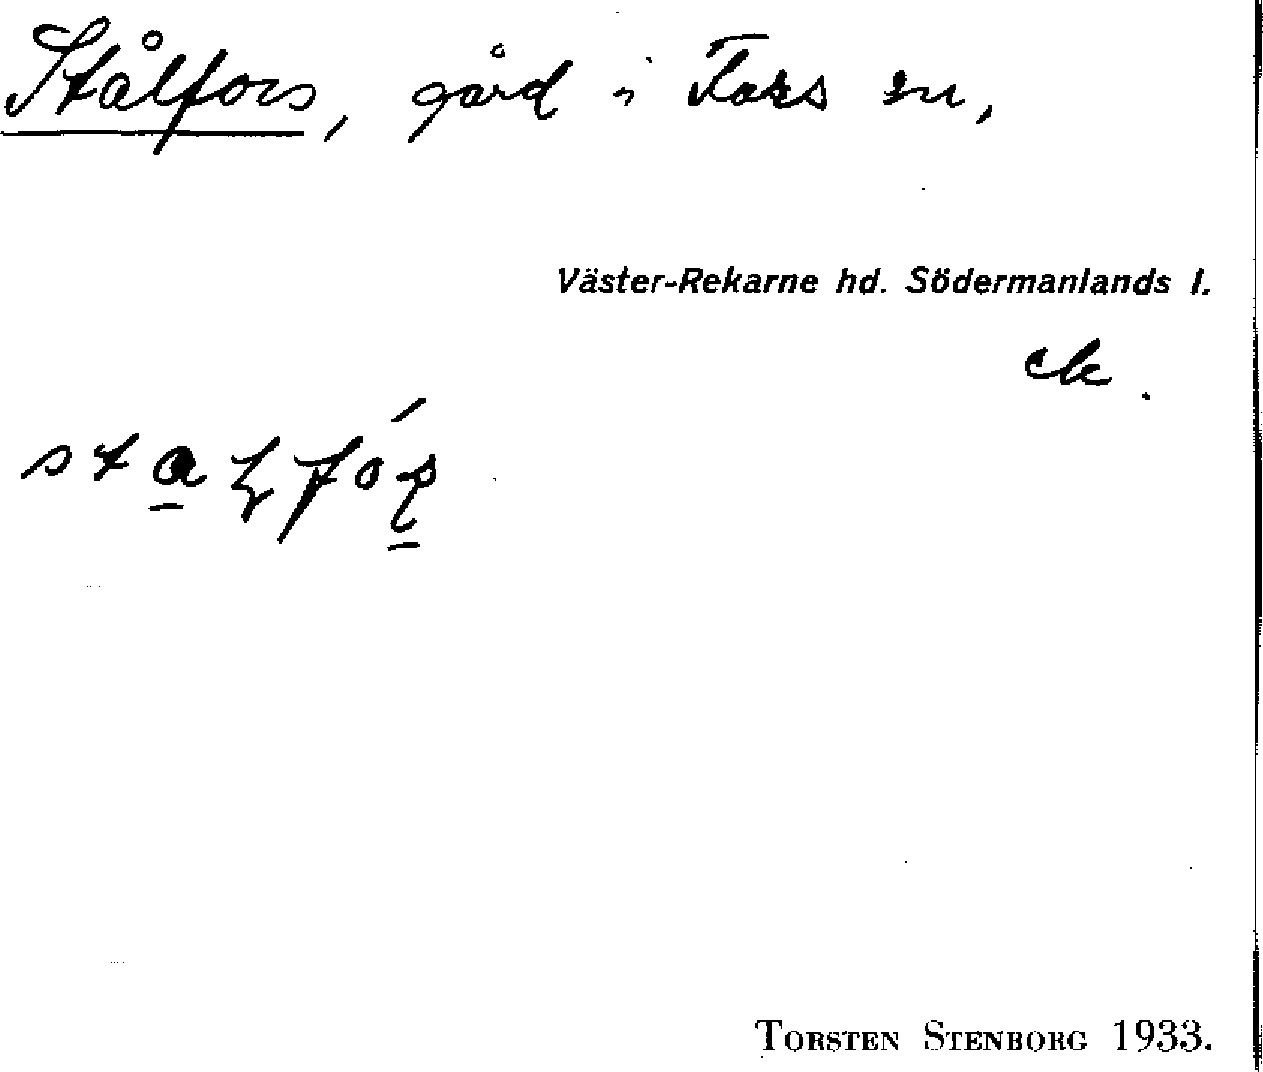 Stålfors, gård i Tors sn,
Väster-Rekarne hd. Södermanlands l.
TORSTEN STENBORG 1933.